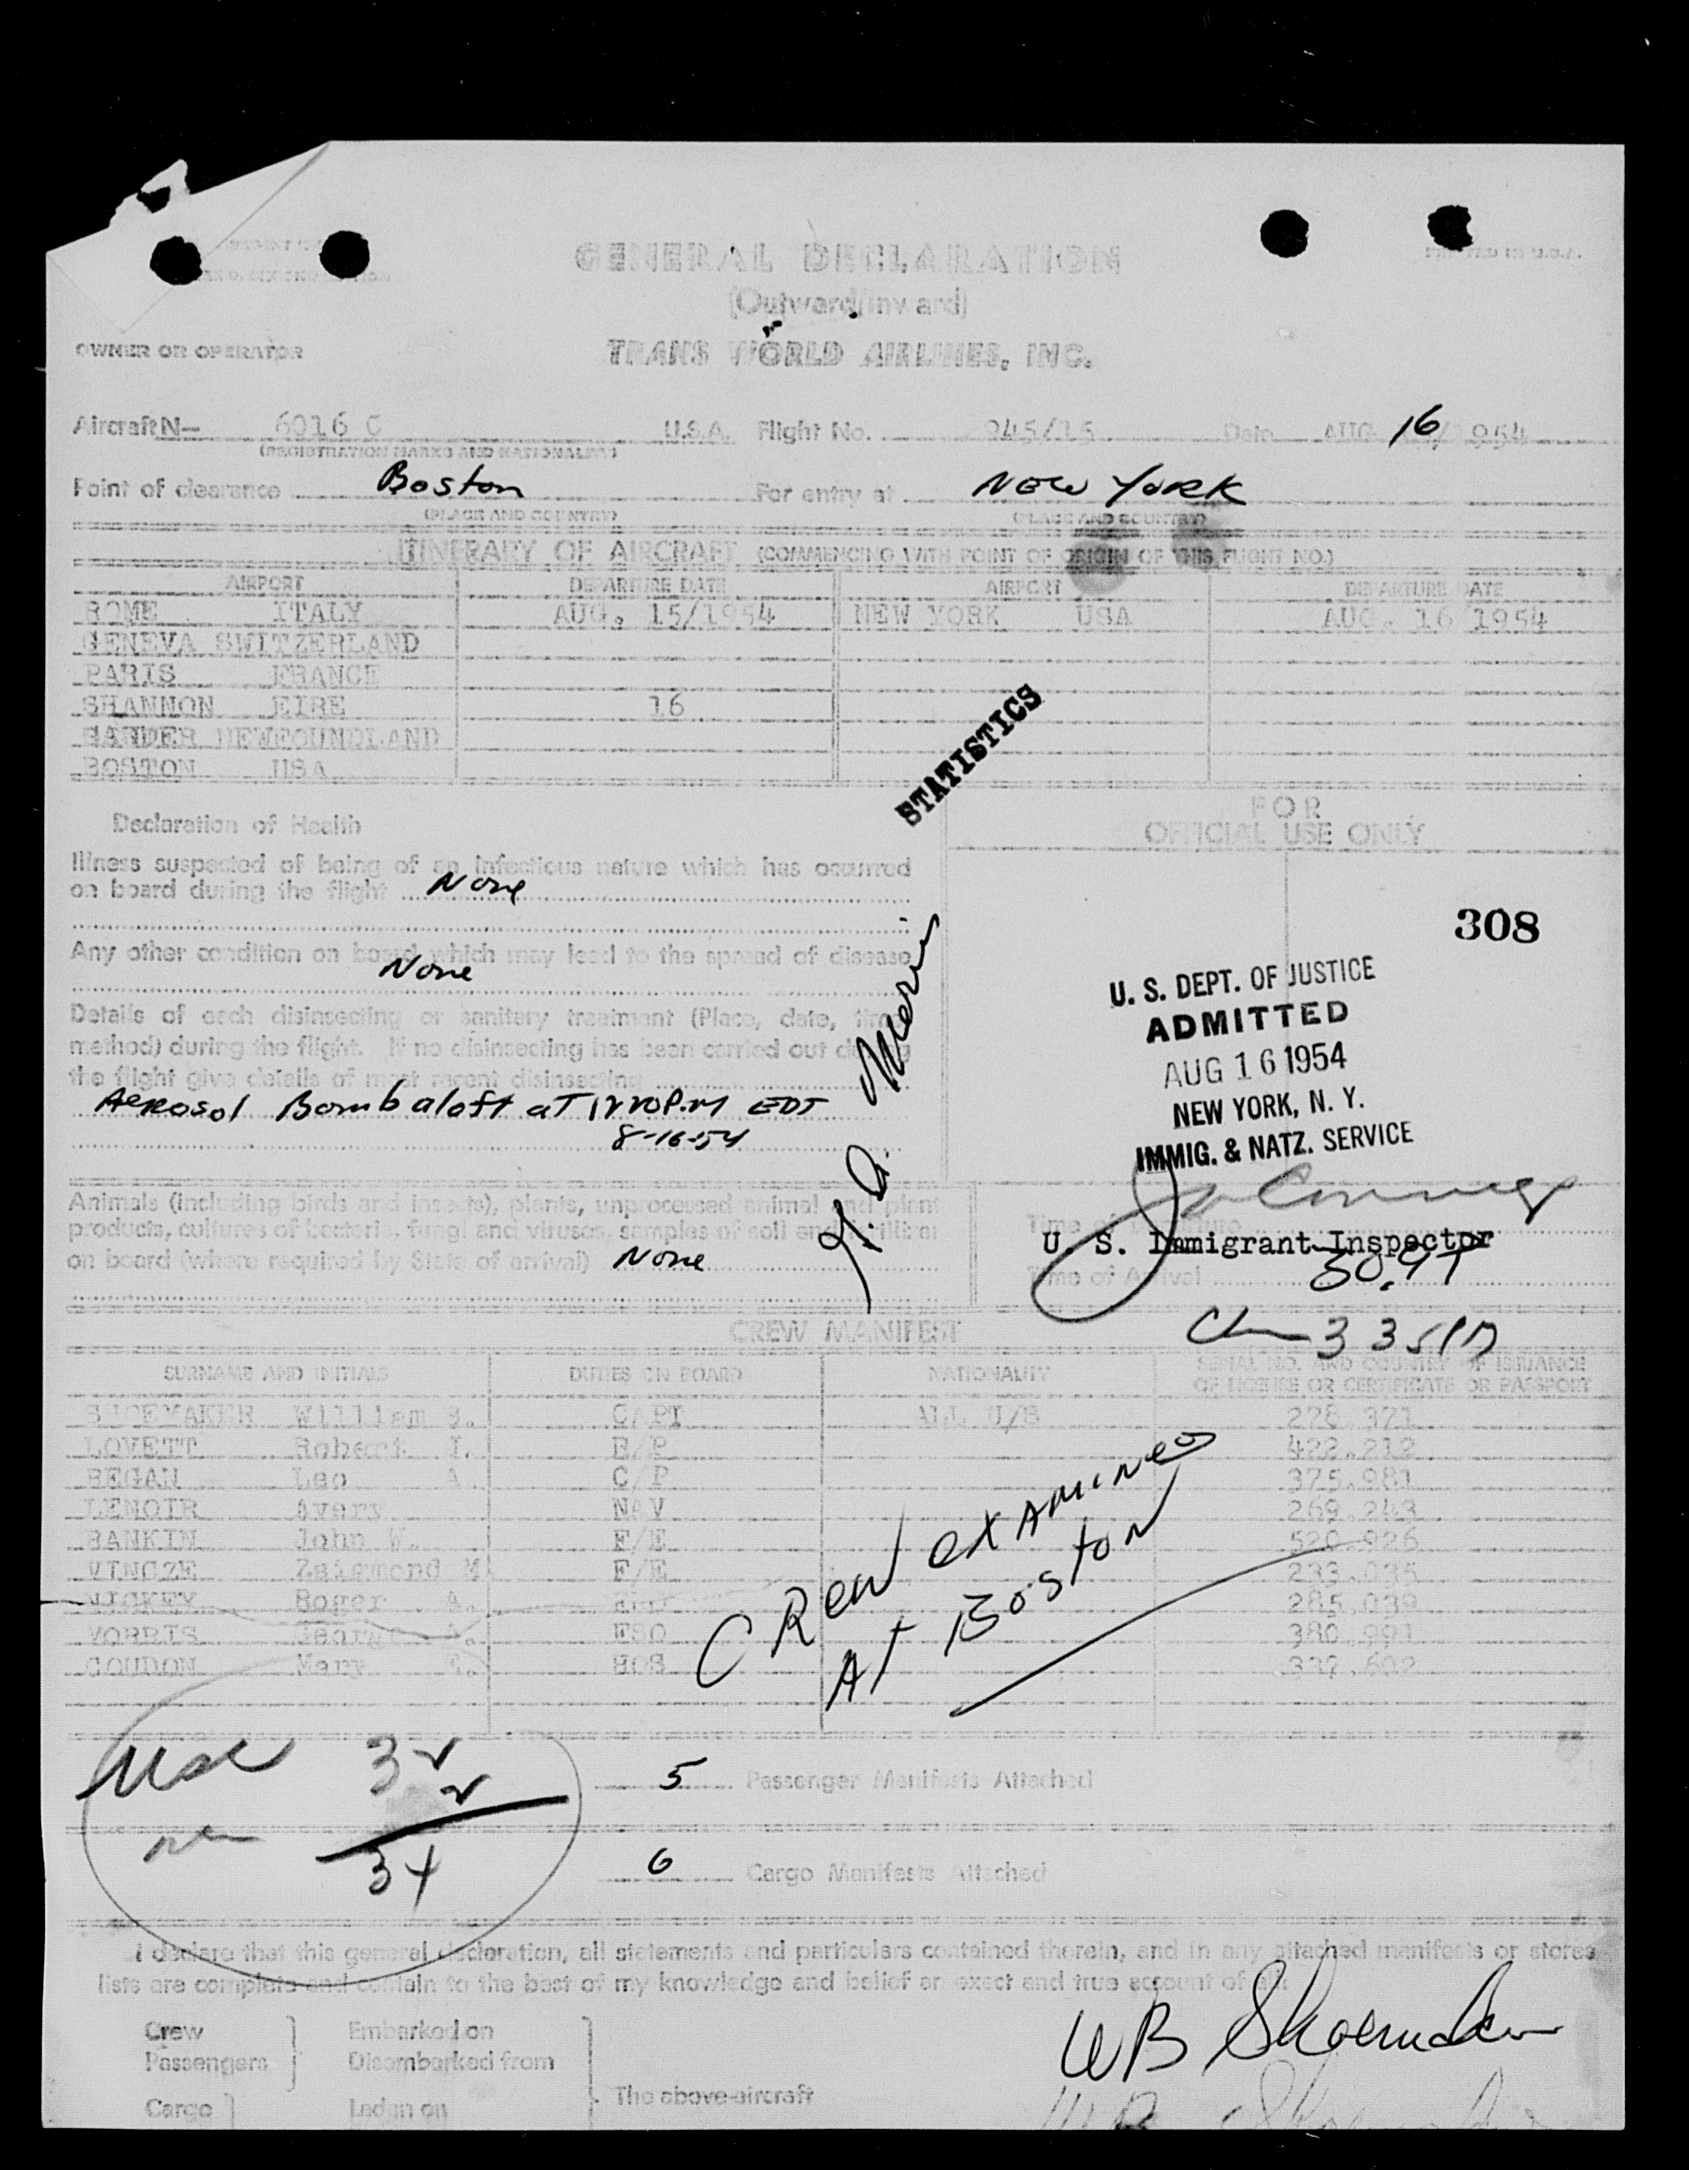 GENERAL DECLARATION
(Outward/Inward)
OWNER OR OPERATOR TRANS WORLD AIRLINES, INC.
Aircraft N- 6016 C U.S.A. Flight No. 945/15 Date AUG 16 1954
(REGISTRATION MARKS AND NATIONALITY)
Point of clearance Boston For entry at New York
(PLACE AND COUNTRY) (PLACE AND COUNTRY)
ITINERARY OF AIRCRAFT (COMMENCING WITH POINT OF ORIGIN OF THIS FLIGHT NO.)
AIRPORT DEPARTURE DATE AIRPORT DEPARTURE DATE
ROME ITALY AUG. 15/1954 NEW YORK USA AUG. 16 1954
GENEVA SWITZERLAND
PARIS FRANCE
SHANNON EIRE 16
GANDER NEWFOUNDLAND
BOSTON USA
STATISTICS
Declaration of Health
FOR
OFFICIAL USE ONLY
Illness suspected of being of an infectious nature which has occurred
on board during the flight None
308
Any other condition on board which may lead to the spread of disease
None
Details of each disinsecting or sanitary treatment (Place, date, time
method) during the flight. If no disinsecting has been carried out during
the flight give details of most recent disinsecting
Aerosol Bomb aloft at 1220P.M EDT
8-16-54
U. S. DEPT. OF JUSTICE
ADMITTED
AUG 16 1954
NEW YORK, N. Y.
IMMIG. & NATZ. SERVICE
Animals (including birds and insects), plants, unprocessed animal and plant
products, cultures of bacteria, fungi and viruses, samples of soil and
on board (where required by State of arrival) None
U. S. Immigrant Inspector
Time of Arrival
CREW MANIFEST
SURNAME AND INITIALS DUTIES ON BOARD NATIONALITY SERIAL NO. AND COUNTRY OF ISSUANCE
OF LICENSE OR CERTIFICATE OR PASSPORT
SHOEMAKER William B. CAPT ALL U/S 278.371
LOVETT Robert I. F/P 422.212
REGAN Leo A C/P 375.981
LENOIR Avery NAV 269.243
RANKIN John W. F/E 520.926
VINCZE Zsigmond M F/E 233.035
Roger A. 285.039
George A. FSO 380.991
COUDON Mary E. HOS 337.602
Crew examined
At Boston
32
2
34
5 Passenger Manifests Attached
6 Cargo Manifests Attached
I declare that this general declaration, all statements and particulars contained therein, and in any attached manifests or stores
lists are complete and contain to the best of my knowledge and belief an exact and true account of all
WB Shoemaker
Crew Embarked on
Passengers Disembarked from
The above-aircraft
Cargo Laden on